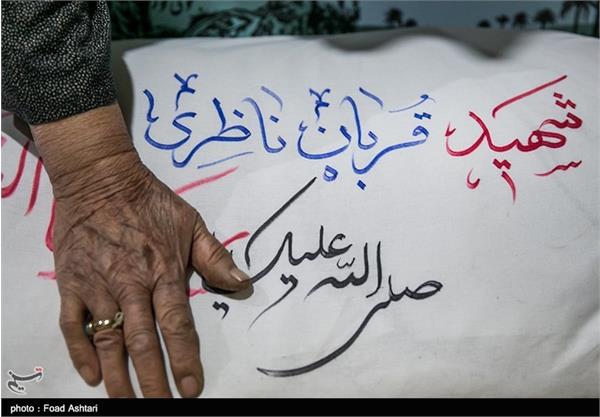 شهید قربان ناظری
صلی الله علیک یا
تسنیم
photo : Foad Ashtari